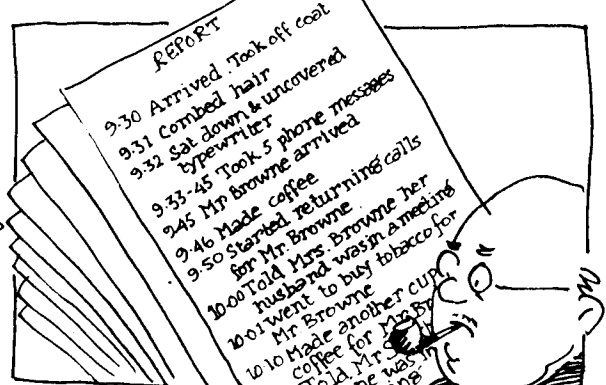 REPORT
9.30 Arrived. Took off coat
9.31 Combed hair
9.32 Sat down & uncovered
typewriter
9.33-45 Took 5 phone messages
9.45 Mr Browne arrived
9.46 Made coffee
9.50 Started returning calls
for Mr. Browne
10.00 Told Mrs. Browne her
husband was in a meeting
10.01 Went to buy tobacco for
Mr Browne
10 10 Made another cup
coffee for Mr. Br
Told Mr
was in